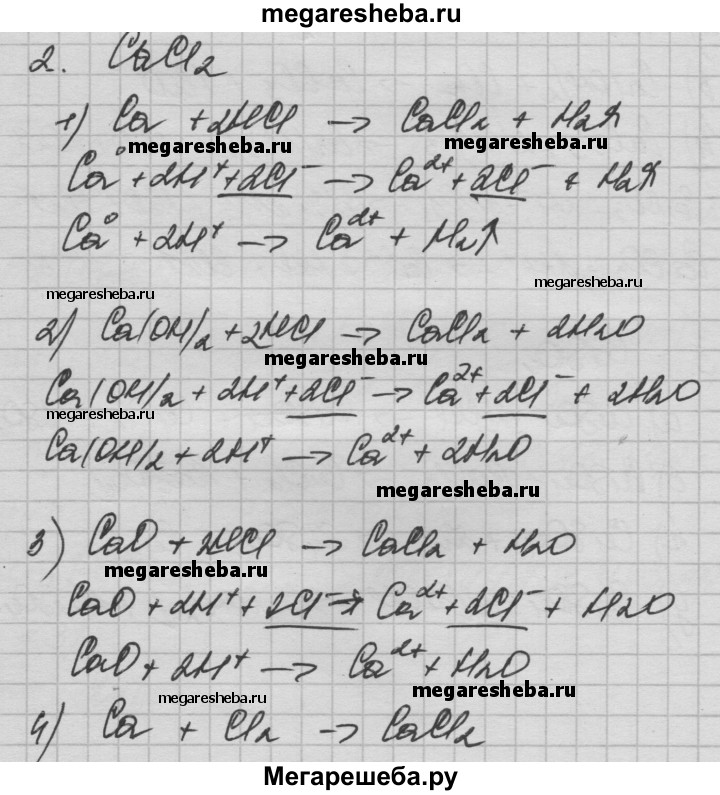 megaresheba.ru
2. CaCl2
1) Ca + 2HCl → CaCl2 + H2↑
megaresheba.ru megaresheba.ru
Ca⁰ + 2H⁺ + 2Cl⁻ → Ca²⁺ + 2Cl⁻ + H2↑
Ca⁰ + 2H⁺ → Ca²⁺ + H2↑
megaresheba.ru megaresheba.ru
2) Ca(OH)2 + 2HCl → CaCl2 + 2H2O
megaresheba.ru
Ca(OH)2 + 2H⁺ + 2Cl⁻ → Ca²⁺ + 2Cl⁻ + 2H2O
Ca(OH)2 + 2H⁺ → Ca²⁺ + 2H2O
megaresheba.ru
3) CaO + 2HCl → CaCl2 + H2O
megaresheba.ru
CaO + 2H⁺ + 2Cl⁻ → Ca²⁺ + 2Cl⁻ + H2O
CaO + 2H⁺ → Ca²⁺ + H2O
megaresheba.ru megaresheba.ru
4) Ca + Cl2 → CaCl2
Мегарешеба.ру